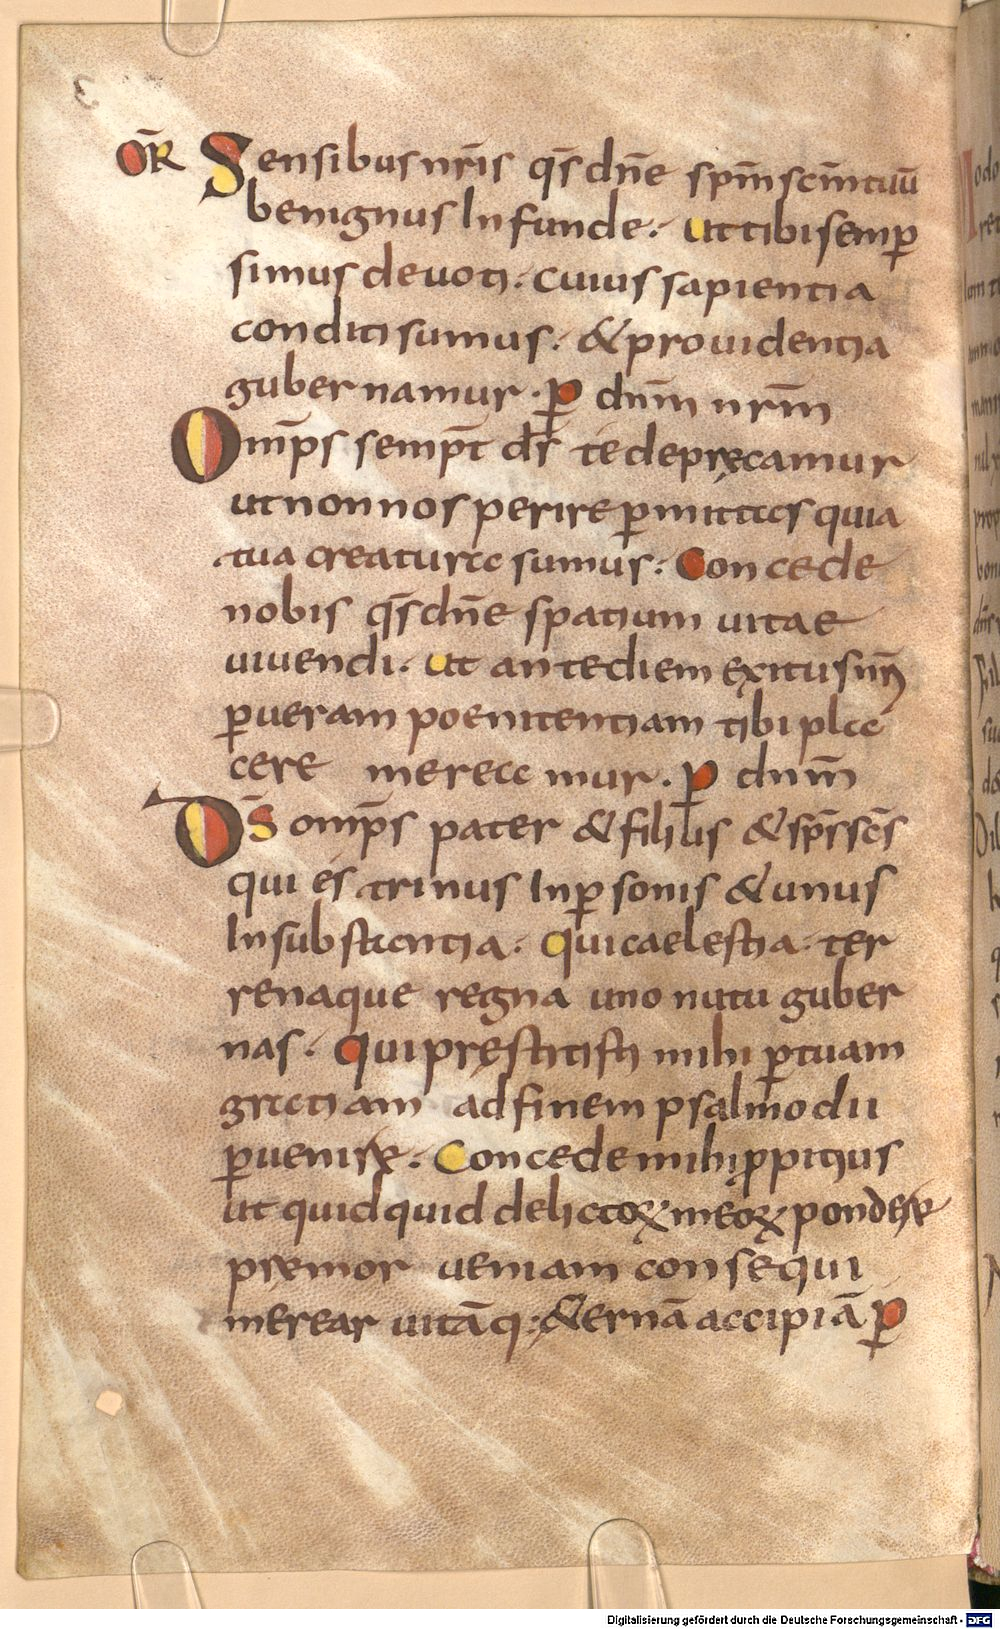 OR̄ Sensibus nr̄is q̄s dn̄e sp̄m sc̄m tuū
benignus Infunde. ut tibi semp̄
simus deuoti. cuius sapientia
conditi sumus. & prouidentia
gubernamur. p̄ dn̄m nr̄m
Om̄ps semp̄t ds̄ te deprecamur
ut non nos perire p̄mittas quia
tua creatura sumus. Concede
nobis q̄s dn̄e spatium uitae
uiuendi. ut ante diem exitus nr̄i
p̄ueram poenitentiam tibi pla
cere mereamur. p̄ dn̄m
Ds̄ om̄ps pater & filius & sp̄s sc̄s
qui es trinus In p̄sonis & unus
In substantia. qui caelestia. ter
renaque regna uno nutu guber
nas. Qui pręstitisti mihi p̄ tuam
gratiam ad finem psalmodii
p̄uenire. Concede mihi p̄pitius
ut quidquid delictoꝝ meoꝝ pondere
premor ueniam consequi
merear uitāq; &ernā accipiā p̄
Digitalisierung gefördert durch die Deutsche Forschungsgemeinschaft - DFG